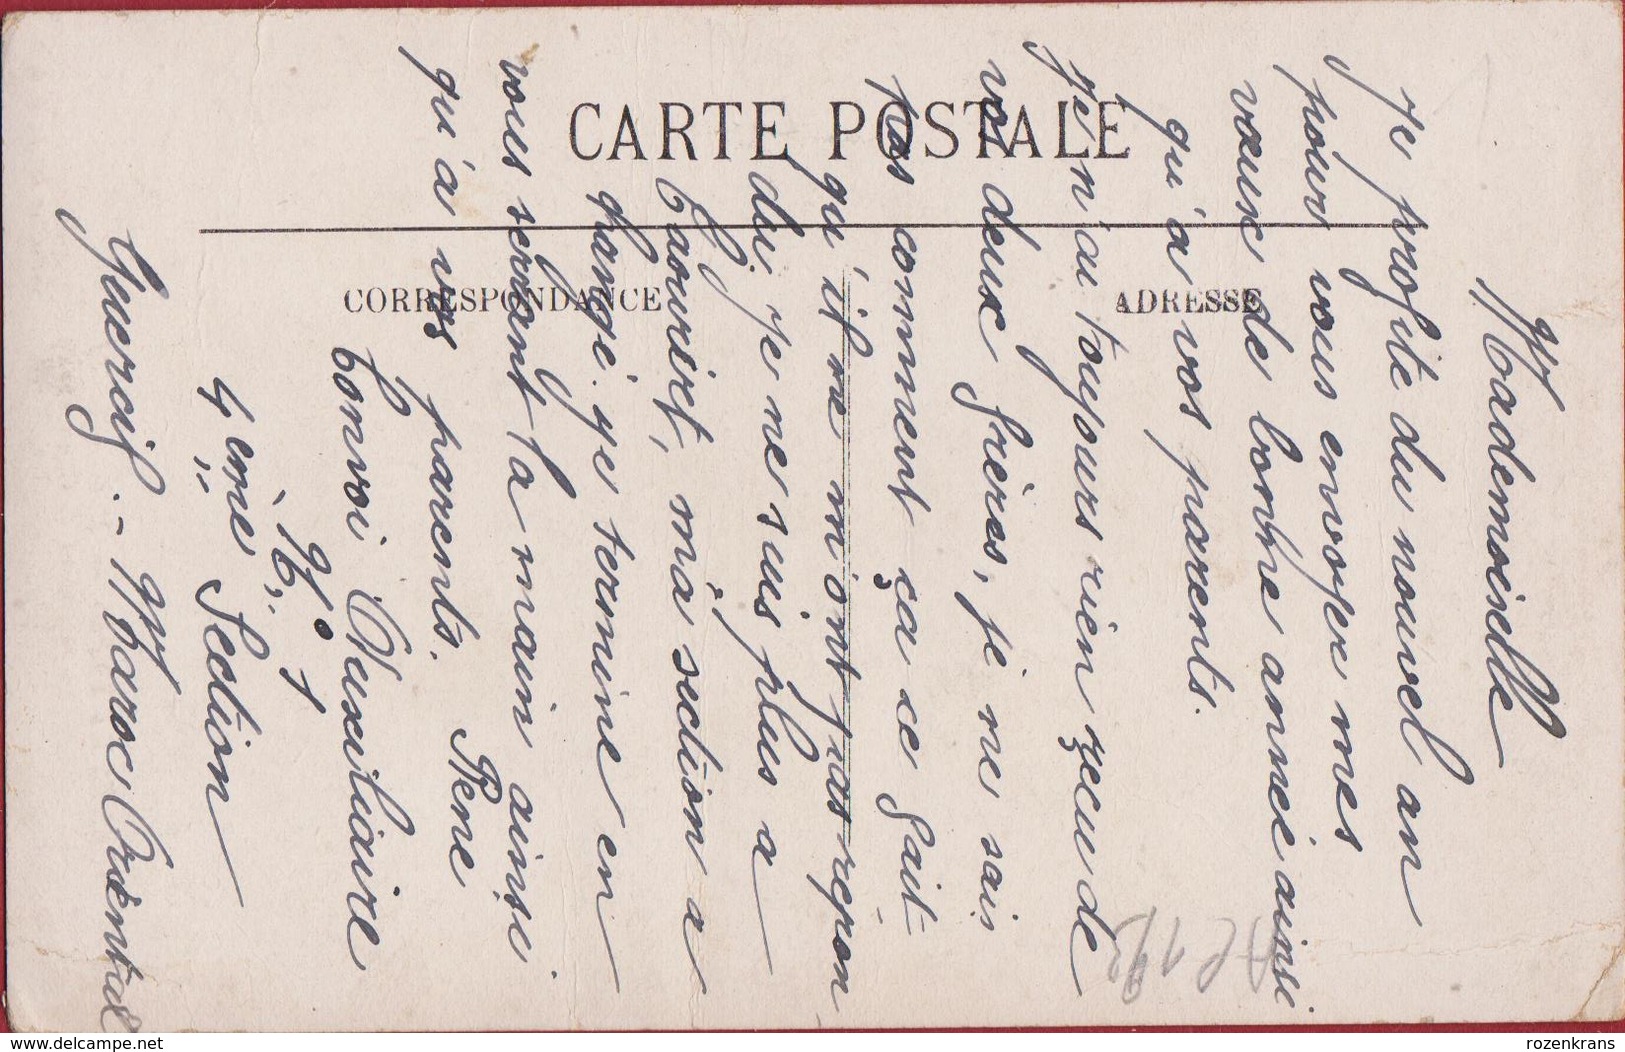 CARTE POSTALE
CORRESPONDANCE
ADRESSE
Mademoiselle
Je profite du nouvel an
pour vous envoyer mes
vœux de bonne année ainsi
qu'à vos parents.
Je n'ai toujours rien reçu de
vos deux frères, je ne sais
pas comment ça ce fait
qu'il ne m'ont pas répon
du. Je ne suis plus a
Taourirt, ma section a
changé. Je termine en
vous serrant la main ainsi
qu'à vos parents.
René
Convoi Auxiliaire
N° 1
4 ème Section
Guercif - Maroc Oriental
delcampe.net
rozenkrans